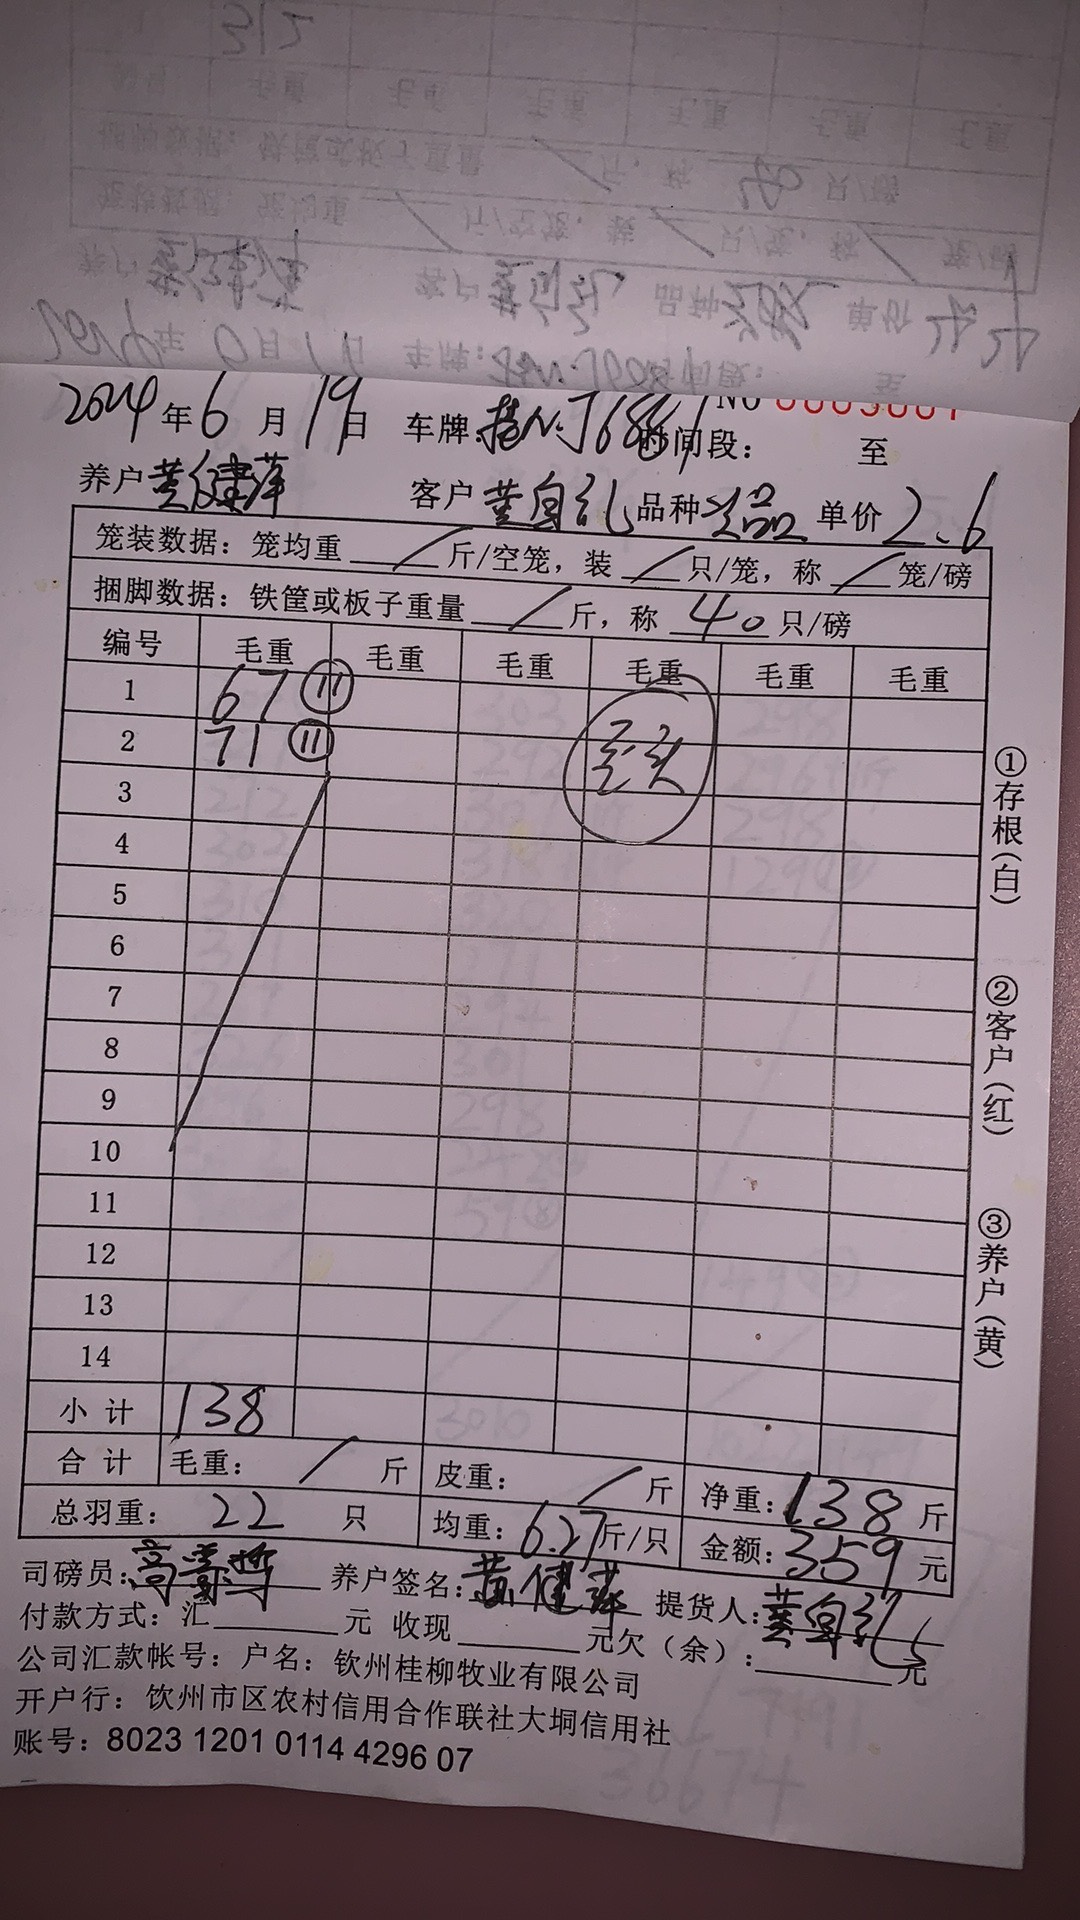 2024年6月19日 车牌: 时间段: 至
养户 黄健萍 客户 黄自礼 品种 次品 单价 2.6
笼装数据:笼均重 / 斤/空笼,装 / 只/笼,称 / 笼/磅
捆脚数据:铁筐或板子重量 / 斤,称 40 只/磅
编号 毛重 毛重 毛重 毛重 毛重 毛重
1 67 ⑪
2 71 ⑪
3
4
5
6
7
8
9
10
11
12
13
14
小计 138
合计 毛重: / 斤 皮重: / 斤 净重: 138 斤
总羽重: 22 只 均重: 6.27 斤/只 金额: 359 元
司磅员: 养户签名: 黄健萍 提货人: 黄自礼
付款方式:汇 元 收现 元欠(余): 元
公司汇款帐号:户名:钦州桂柳牧业有限公司
开户行:饮州市区农村信用合作联社大垌信用社
账号:8023 1201 0114 4296 07
①存根(白)
②客户(红)
③养户(黄)